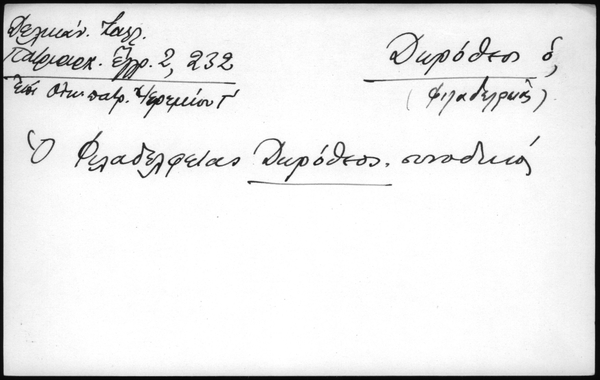 Δελικάν. Καλλ.
Πατριαρχ. Ἔγγρ. 2, 232
Ἐπὶ Οἰκ. πατρ. Ἱερεμίου Γ´
Δωρόθεος ὁ,
(Φιλαδελφείας)
Ὁ Φιλαδελφείας Δωρόθεος. συνοδικός